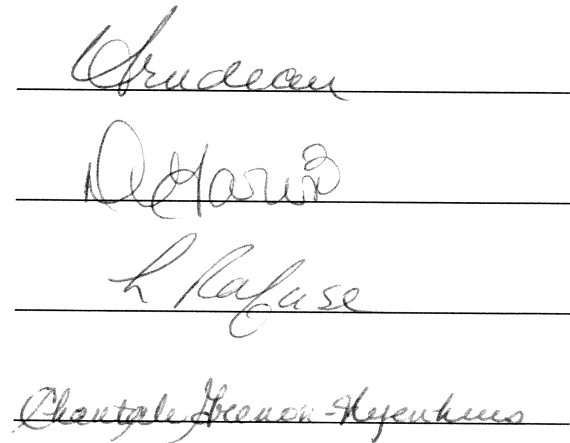 Trudeau
D Harris
L Rafuse
Chantale Grenon-Nyenhuis